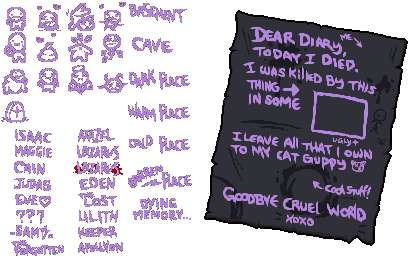 BASEMENT
CAVE
DARK PLACE
WARM PLACE
COLD PLACE
PLACE
DYING
MEMORY...
ISAAC
MAGGIE
CAIN
JUDAS
EVE
???
SAMSON
THE
FORGOTTEN
AZAZEL
LAZARUS
LAZARUS
EDEN
THE
LOST
LILITH
KEEPER
APOLLYON
DEAR DIARY, ME
TODAY I DIED.
I WAS KILLED BY THIS
THING
IN SOME
UGLY
I LEAVE ALL THAT I OWN
TO MY CAT GUPPY
COOL STUFF!
GOODBYE CRUEL WORLD
XOXO